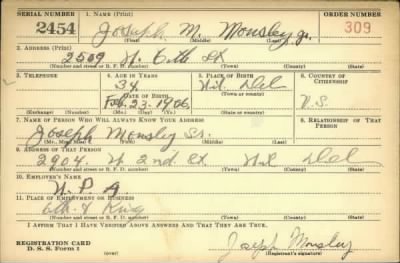 SERIAL NUMBER 1. NAME (Print) ORDER NUMBER
2454 Joseph M. Mousley Jr. 309
(First) (Middle) (Last)
2. ADDRESS (Print)
2502 W. 6th St
(Number and street or R. F. D. number) (Town) (County) (State)
3. TELEPHONE 4. AGE IN YEARS 5. PLACE OF BIRTH 6. COUNTRY OF CITIZENSHIP
34 Wil Del
DATE OF BIRTH (Town or county)
Feb. 23-1906 U.S.
(Exchange) (Number) (Mo.) (Day) (Yr.) (State or country)
7. NAME OF PERSON WHO WILL ALWAYS KNOW YOUR ADDRESS 8. RELATIONSHIP OF THAT PERSON
Joseph Mousley Sr.
(Mr., Mrs., Miss) (First) (Middle) (Last)
9. ADDRESS OF THAT PERSON
2904 W 2nd St. Wil Del
(Number and street or R. F. D. number) (Town) (County) (State)
10. EMPLOYER'S NAME
W. P. A
11. PLACE OF EMPLOYMENT OR BUSINESS
6th & King
(Number and street or R. F. D. number) (Town) (County) (State)
I AFFIRM THAT I HAVE VERIFIED ABOVE ANSWERS AND THAT THEY ARE TRUE.
REGISTRATION CARD
D. S. S. Form 1 (over) Joseph Mousley
(Registrant's signature)